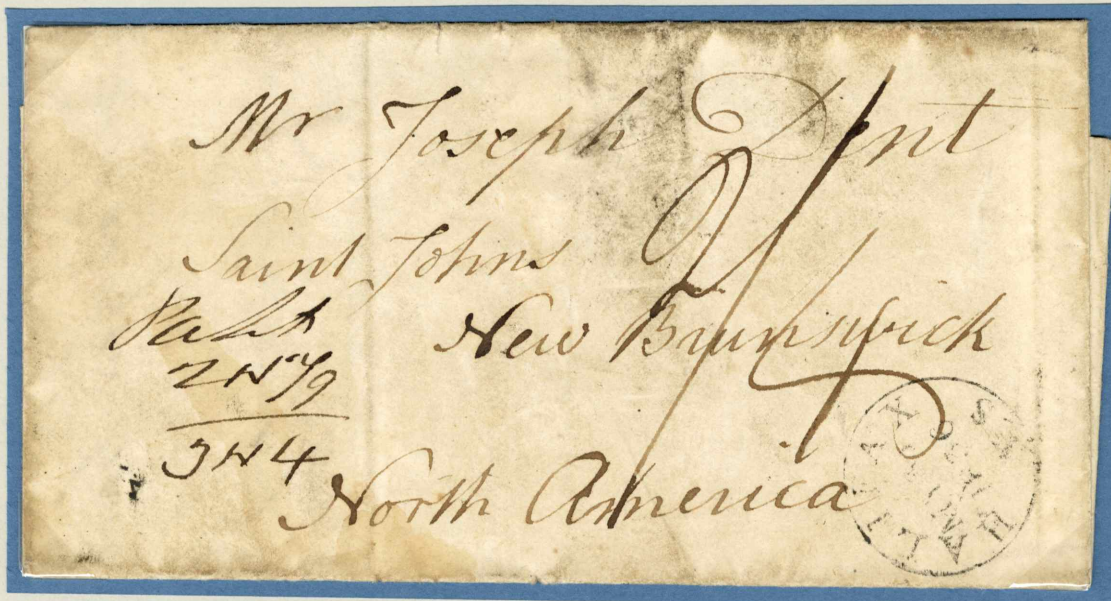 Mr Joseph Dent
Saint Johns
New Brunswick
North America
2/4
3 N 4
HALIFAX